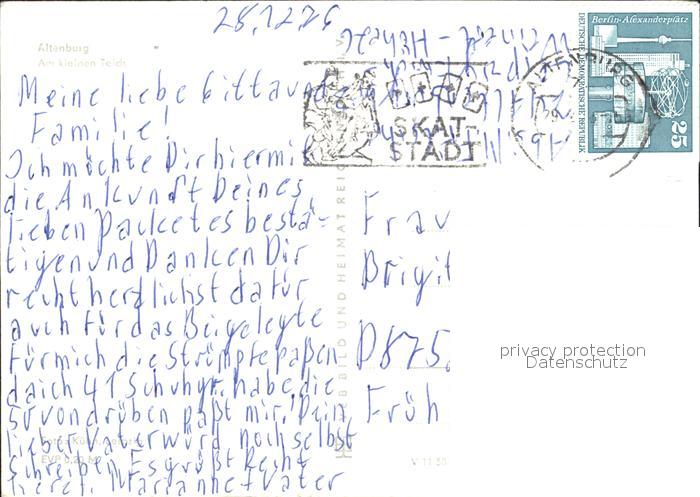 28.12.76
Altenburg
Am kleinen Teich
Meine liebe Gitta und
Familie!
Ich möchte Dir hiermit
die Ankunft Deines
lieben Packetes bestä-
tigen und Danken Dir
recht herzlichst dafür
auch für das Beigelegte
für mich die Strümpfe paßen
da ich 41 Schuhgr. habe die
so von drüben paßt mir. Dein
lieber Vater würd noch selbst
schreiben. Es grüßt Recht
herzl. Marianne + Vater
BILD UND HEIMAT REIC
EVP 0,20 M
V 11 50
SKAT-
STADT
ALTENBURG
Berlin-Alexanderplatz
DEUTSCHE DEMOKRATISCHE REPUBLIK
25
Frau
Brigit
D 875
Früh
privacy protection
Datenschutz